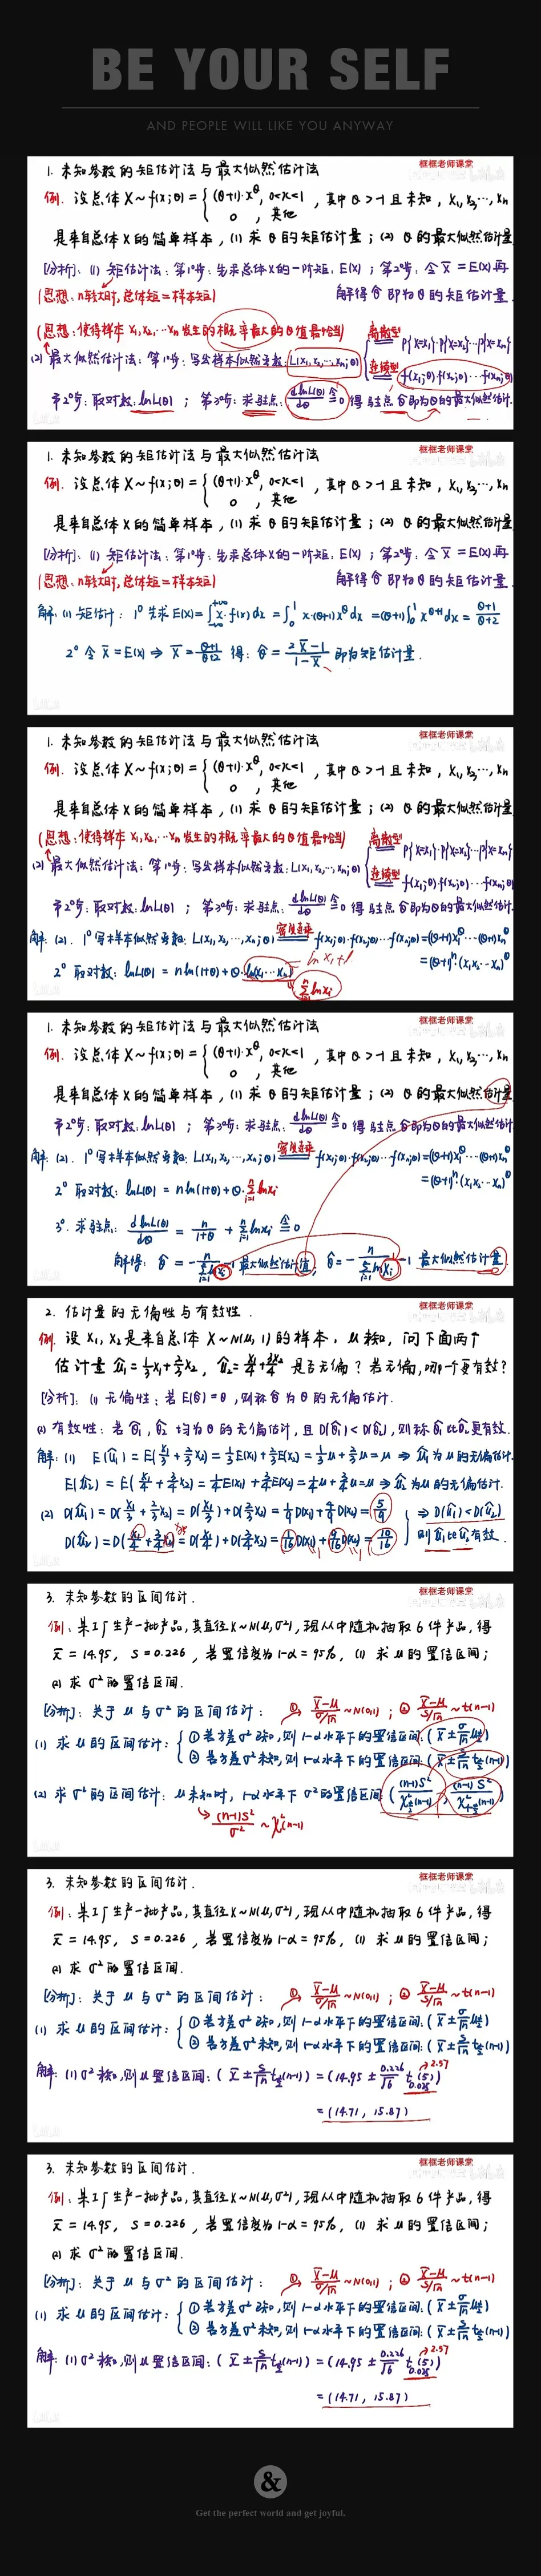 BE YOUR SELF
AND PEOPLE WILL LIKE YOU ANYWAY
框框老师课堂
1. 未知参数的矩估计法与最大似然估计法
例. 设总体 X~f(x;θ)={(θ+1)·x^θ, 0<x<1 ; 0, 其他 , 其中 θ>-1 且未知, X₁,X₂,…,Xn
是来自总体 X 的简单样本, (1) 求 θ 的矩估计量; (2) θ 的最大似然估计量
[分析]: (1) 矩估计法: 第1°步: 先求总体X的一阶矩: E(X) ; 第2°步: 令 X̄=E(X) 再
(思想: n较大时, 总体矩=样本矩) 解得 θ̂ 即为 θ 的矩估计量.
(思想: 使得样本 X₁,X₂,…Xn 发生的概率最大的 θ 值最恰当)
(2) 最大似然估计法: 第1°步: 写出样本似然函数: L(x₁,x₂,…,xn;θ) {离散型 P{X=x₁}·P{X=x₂}…P{X=xn}
连续型 f(x₁;θ)·f(x₂;θ)…f(xn;θ)
第2°步: 取对数: lnL(θ) ; 第3°步: 求驻点: dlnL(θ)/dθ ≙ 0 得驻点 θ̂ 即为θ的最大似然估计.
框框老师课堂
1. 未知参数的矩估计法与最大似然估计法
例. 设总体 X~f(x;θ)={(θ+1)·x^θ, 0<x<1 ; 0, 其他 , 其中 θ>-1 且未知, X₁,X₂,…,Xn
是来自总体 X 的简单样本, (1) 求 θ 的矩估计量; (2) θ 的最大似然估计量
[分析]: (1) 矩估计法: 第1°步: 先求总体X的一阶矩: E(X) ; 第2°步: 令 X̄=E(X) 再
(思想: n较大时, 总体矩=样本矩) 解得 θ̂ 即为 θ 的矩估计量.
解: (1) 矩估计: 1° 先求 E(X)=∫₋∞^+∞ x·f(x)dx =∫₀¹ x·(θ+1)x^θ dx =(θ+1)∫₀¹ x^(θ+1) dx = (θ+1)/(θ+2)
2° 令 X̄=E(X) ⇒ X̄=(θ+1)/(θ+2) 得: θ̂=(2X̄-1)/(1-X̄) 即为矩估计量.
框框老师课堂
1. 未知参数的矩估计法与最大似然估计法
例. 设总体 X~f(x;θ)={(θ+1)·x^θ, 0<x<1 ; 0, 其他 , 其中 θ>-1 且未知, X₁,X₂,…,Xn
是来自总体 X 的简单样本, (1) 求 θ 的矩估计量; (2) θ 的最大似然估计量
(思想: 使得样本 X₁,X₂,…Xn 发生的概率最大的 θ 值最恰当)
(2) 最大似然估计法: 第1°步: 写出样本似然函数: L(x₁,x₂,…,xn;θ) {离散型 P{X=x₁}·P{X=x₂}…P{X=xn}
连续型 f(x₁;θ)·f(x₂;θ)…f(xn;θ)
第2°步: 取对数: lnL(θ) ; 第3°步: 求驻点: dlnL(θ)/dθ ≙ 0 得驻点 θ̂ 即为θ的最大似然估计.
解: (2). 1° 写样本似然函数: L(x₁,x₂,…,xn;θ) = f(x₁;θ)·f(x₂;θ)…f(xn;θ)=(θ+1)x₁^θ…(θ+1)xn^θ
=(θ+1)^n·(x₁x₂…xn)^θ
2° 取对数: lnL(θ)= nln(1+θ)+θ·ln(x₁…xn) = lnx₁+
Σ(i=1→n) lnxᵢ
框框老师课堂
1. 未知参数的矩估计法与最大似然估计法
例. 设总体 X~f(x;θ)={(θ+1)·x^θ, 0<x<1 ; 0, 其他 , 其中 θ>-1 且未知, X₁,X₂,…,Xn
是来自总体 X 的简单样本, (1) 求 θ 的矩估计量; (2) θ 的最大似然估计量
第2°步: 取对数: lnL(θ) ; 第3°步: 求驻点: dlnL(θ)/dθ ≙ 0 得驻点 θ̂ 即为θ的最大似然估计
解: (2). 1° 写样本似然函数: L(x₁,x₂,…,xn;θ) = f(x₁;θ)·f(x₂;θ)…f(xn;θ)=(θ+1)x₁^θ…(θ+1)xn^θ
=(θ+1)^n·(x₁x₂…xn)^θ
2° 取对数: lnL(θ)= nln(1+θ)+θ·Σ(i=1→n) lnxᵢ
3°. 求驻点: dlnL(θ)/dθ = n/(1+θ) + Σ(i=1→n) lnxᵢ ≙ 0
解得: θ̂=-n/Σ(i=1→n)lnxᵢ -1 最大似然估计值; θ̂=-n/Σ(i=1→n)lnXᵢ -1 最大似然估计量
框框老师课堂
2. 估计量的无偏性与有效性.
例. 设 X₁, X₂ 是来自总体 X~N(μ,1) 的样本, μ 未知, 问下面两个
估计量 μ̂₁=⅓X₁+⅔X₂, μ̂₂=X₁/4+3X₂/4 是否无偏? 若无偏, 哪个更有效?
[分析]: (1) 无偏性: 若 E(θ̂)=θ, 则称 θ̂ 为 θ 的无偏估计.
(2) 有效性: 若 θ̂₁, θ̂₂ 均为 θ 的无偏估计, 且 D(θ̂₁)<D(θ̂₂), 则称 θ̂₁ 比 θ̂₂ 更有效.
解: (1) E(μ̂₁)=E(X₁/3+⅔X₂)=⅓E(X₁)+⅔E(X₂)=⅓μ+⅔μ=μ ⇒ μ̂₁ 为 μ 的无偏估计.
E(μ̂₂)=E(X₁/4+¾X₂)=¼E(X₁)+¾E(X₂)=¼μ+¾μ=μ ⇒ μ̂₂ 为 μ 的无偏估计.
(2) D(μ̂₁)=D(X₁/3+⅔X₂)=D(X₁/3)+D(⅔X₂)=1/9D(X₁)+4/9D(X₂)=5/9 } ⇒ D(μ̂₁)<D(μ̂₂)
D(μ̂₂)=D(X₁/4+¾X₂)=D(X₁/4)+D(¾X₂)=1/16D(X₁)+9/16D(X₂)=10/16 则 μ̂₁ 比 μ̂₂ 有效.
框框老师课堂
3. 未知参数的区间估计.
例: 某工厂生产一批产品, 其直径 X~N(μ,σ²), 现从中随机抽取 6 件产品, 得
x̄=14.95, S=0.226, 若置信度为 1-α=95%, (1) 求 μ 的置信区间;
(2) 求 σ² 的置信区间.
[分析]: 关于 μ 与 σ² 的区间估计: ① (X̄-μ)/(σ/√n) ~N(0,1) ; ② (X̄-μ)/(S/√n) ~t(n-1)
(1) 求 μ 的区间估计: {① 若方差σ²已知, 则 1-α 水平下的置信区间: (X̄±σ/√n μ_α/2)
② 若方差σ²未知, 则 1-α 水平下的置信区间: (X̄±S/√n t_α/2(n-1))
(2) 求 σ² 的区间估计: μ未知时, 1-α水平下 σ² 的置信区间 ((n-1)S²/χ²_α/2(n-1), (n-1)S²/χ²_1-α/2(n-1))
(n-1)S²/σ² ~χ²(n-1)
框框老师课堂
3. 未知参数的区间估计.
例: 某工厂生产一批产品, 其直径 X~N(μ,σ²), 现从中随机抽取 6 件产品, 得
x̄=14.95, S=0.226, 若置信度为 1-α=95%, (1) 求 μ 的置信区间;
(2) 求 σ² 的置信区间.
[分析]: 关于 μ 与 σ² 的区间估计: ① (X̄-μ)/(σ/√n) ~N(0,1) ; ② (X̄-μ)/(S/√n) ~t(n-1)
(1) 求 μ 的区间估计: {① 若方差σ²已知, 则 1-α 水平下的置信区间: (X̄±σ/√n μ_α/2)
② 若方差σ²未知, 则 1-α 水平下的置信区间: (X̄±S/√n t_α/2(n-1))
解: (1) σ²未知, 则 μ 置信区间: (X̄±S/√n t_α/2(n-1)) = (14.95±0.226/√6 t_0.025(5)) →2.57
=(14.71, 15.87)
框框老师课堂
3. 未知参数的区间估计.
例: 某工厂生产一批产品, 其直径 X~N(μ,σ²), 现从中随机抽取 6 件产品, 得
x̄=14.95, S=0.226, 若置信度为 1-α=95%, (1) 求 μ 的置信区间;
(2) 求 σ² 的置信区间.
[分析]: 关于 μ 与 σ² 的区间估计: ① (X̄-μ)/(σ/√n) ~N(0,1) ; ② (X̄-μ)/(S/√n) ~t(n-1)
(1) 求 μ 的区间估计: {① 若方差σ²已知, 则 1-α 水平下的置信区间: (X̄±σ/√n μ_α/2)
② 若方差σ²未知, 则 1-α 水平下的置信区间: (X̄±S/√n t_α/2(n-1))
解: (1) σ²未知, 则 μ 置信区间: (X̄±S/√n t_α/2(n-1)) = (14.95±0.226/√6 t_0.025(5)) →2.57
=(14.71, 15.87)
&
Get the perfect world and get joyful.